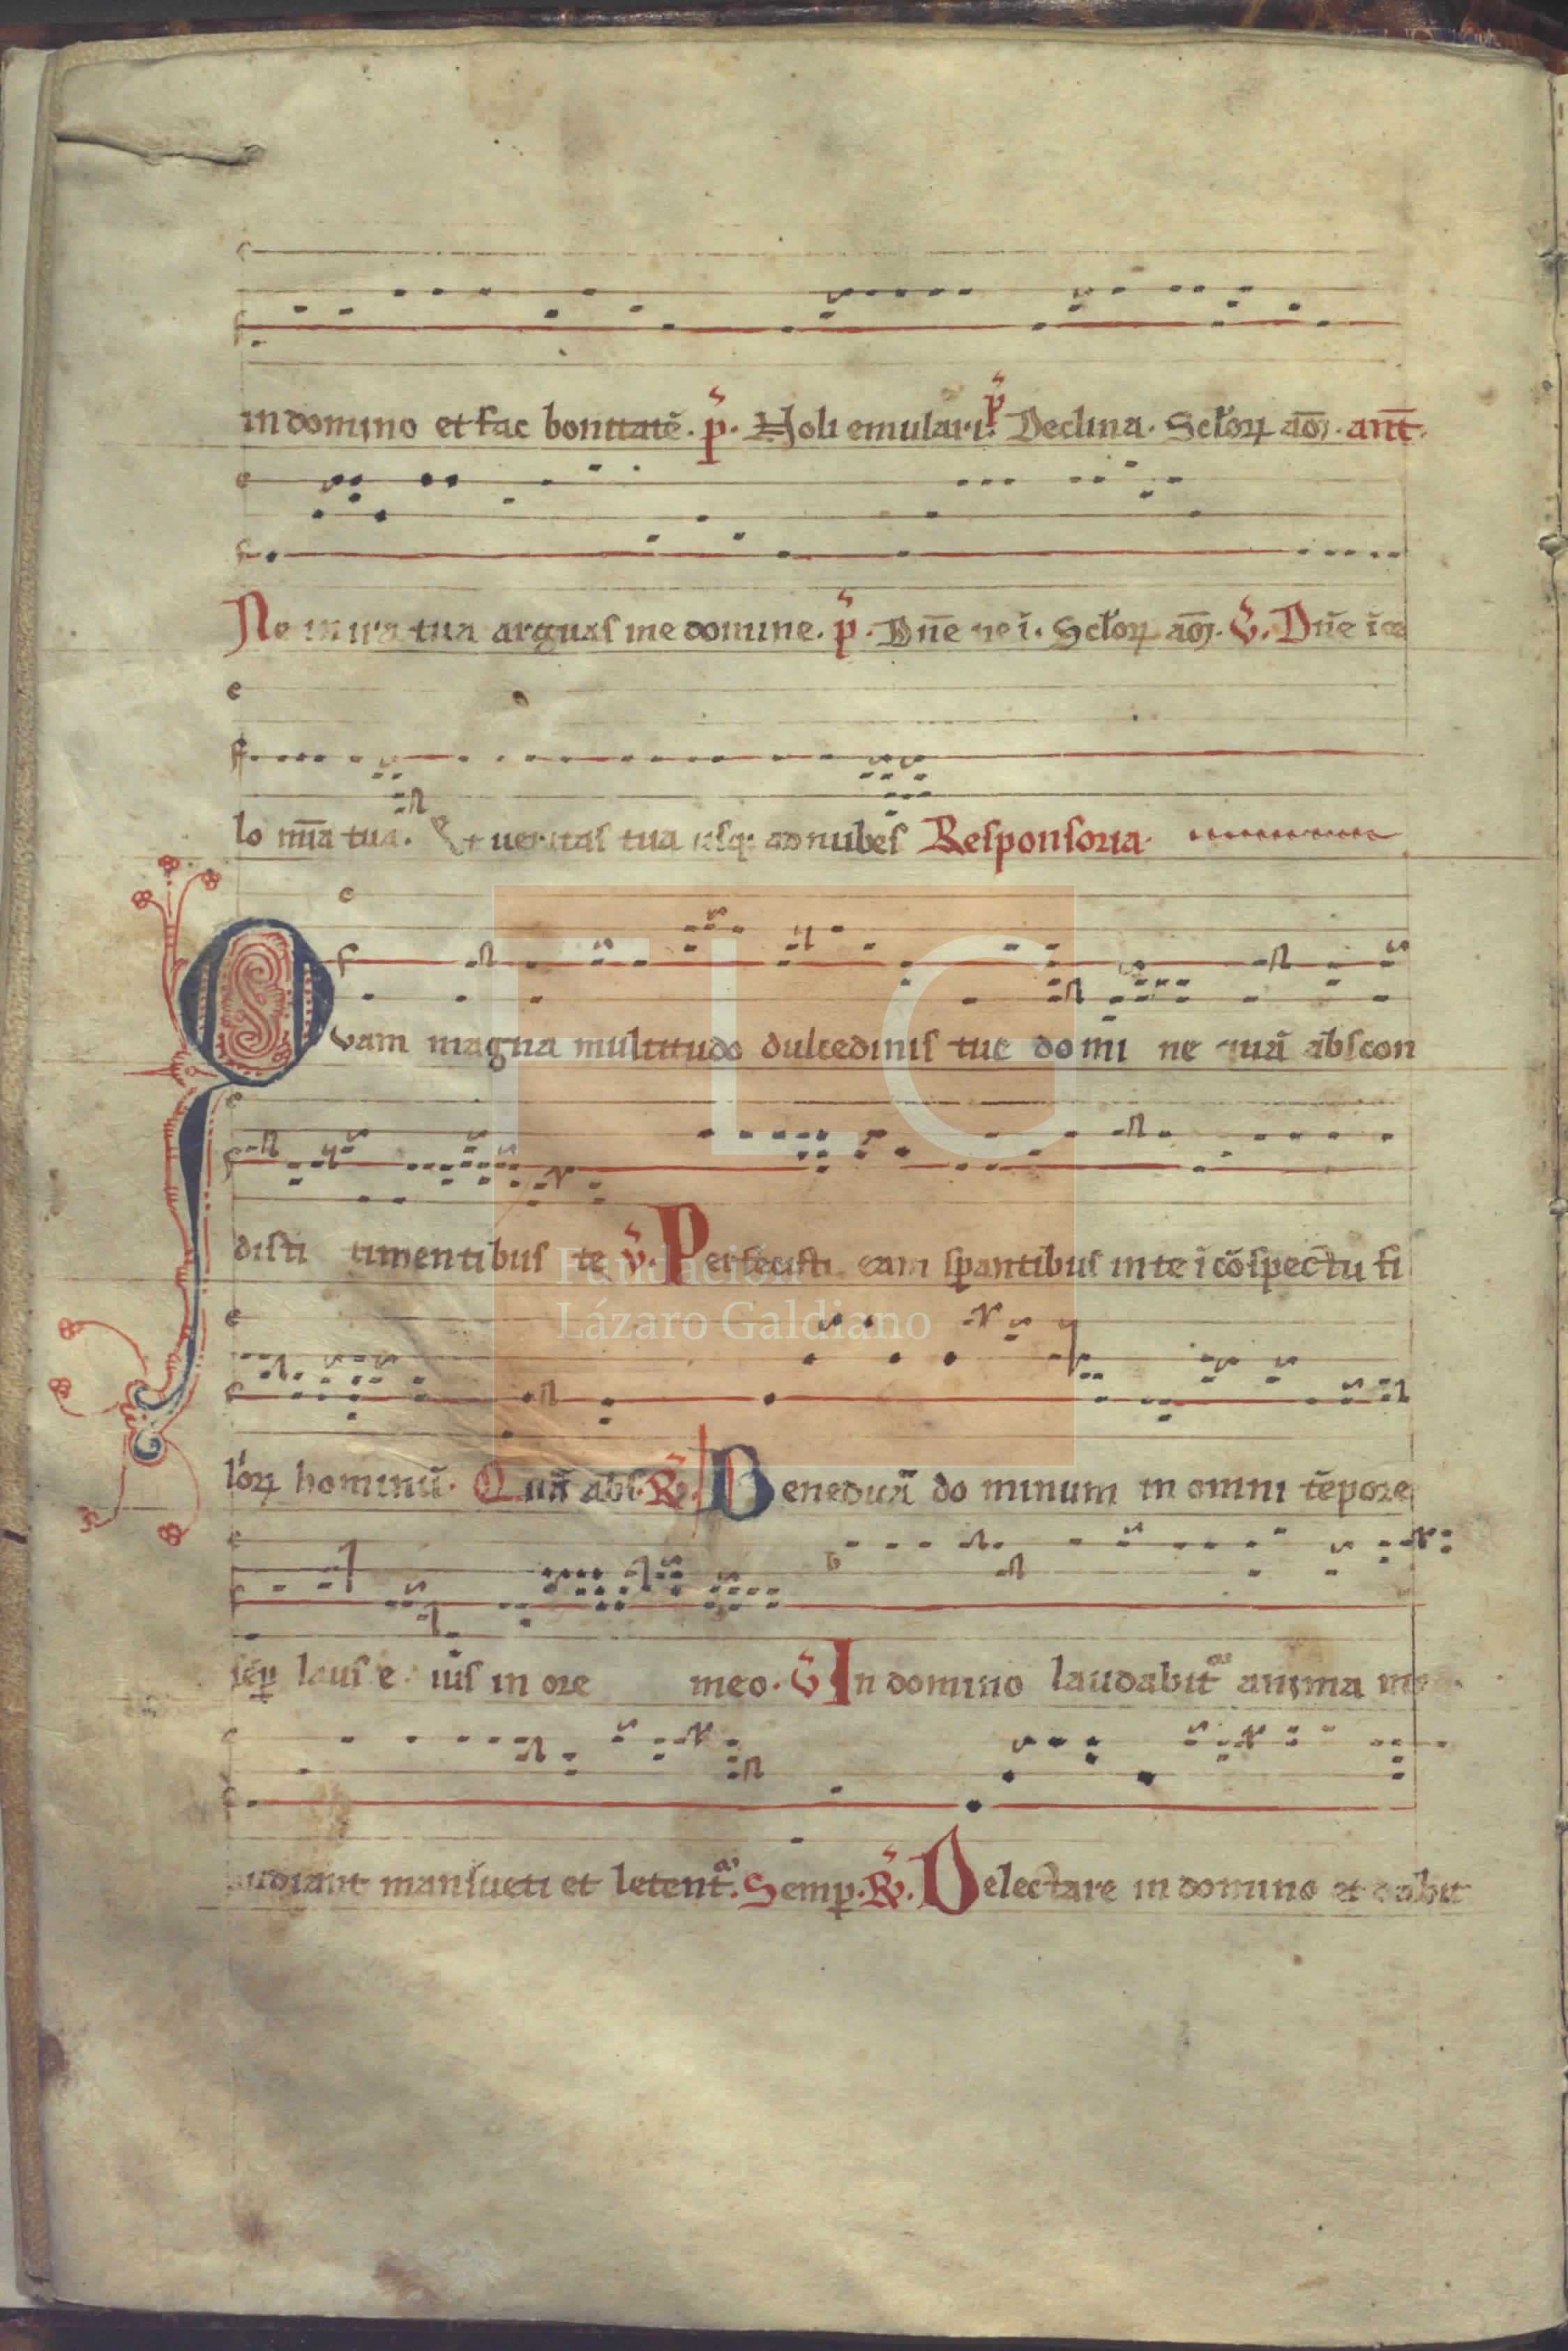 in domino et fac bonitatē. p̄. Noli emulari. p̄ Declina. Sclōꝝ am̄. ant̄.
Ne in ira tua arguas me domine. p̄. Dn̄e ne ī. Sclōꝝ am̄. v̄. Dn̄e ī ce
lo mīa tua. Et ueritas tua usq; ad nubes Responsoria.
Quam magna multitudo dulcedinis tue domi ne quā abscon
disti timentibus te v̄. Perfecisti eam sꝑantibus in te ī cōspectu fi
lioꝝ hominū. Quā abs. R̄. Benedicā do minum in omni tēpore
sēꝑ laus e ius in ore meo. v̄ In domino laudabit̄ anima me
audiant mansueti et letent̄. Semꝑ. R̄. Delectare in domino et dabit
Fundación
Lázaro Galdiano
FLG